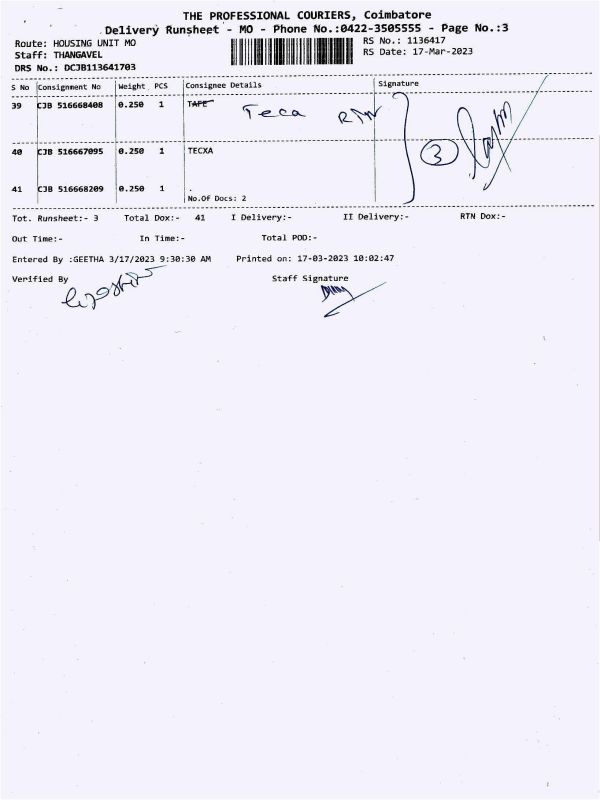 THE PROFESSIONAL COURIERS, Coimbatore
Delivery Runsheet - MO - Phone No.:0422-3505555 - Page No.:3
Route: HOUSING UNIT MO
RS No.: 1136417
Staff: THANGAVEL
RS Date: 17-Mar-2023
DRS No.: DCJB113641703
S No Consignment No Weight PCS Consignee Details Signature
39 CJB 516668408 0.250 1 TAFE Teca
40 CJB 516667095 0.250 1 TECXA 3
41 CJB 516668209 0.250 1 .
No.Of Docs: 2
Tot. Runsheet:- 3 Total Dox:- 41 I Delivery:- II Delivery:- RTN Dox:-
Out Time:- In Time:- Total POD:-
Entered By :GEETHA 3/17/2023 9:30:30 AM Printed on: 17-03-2023 10:02:47
Verified By Staff Signature